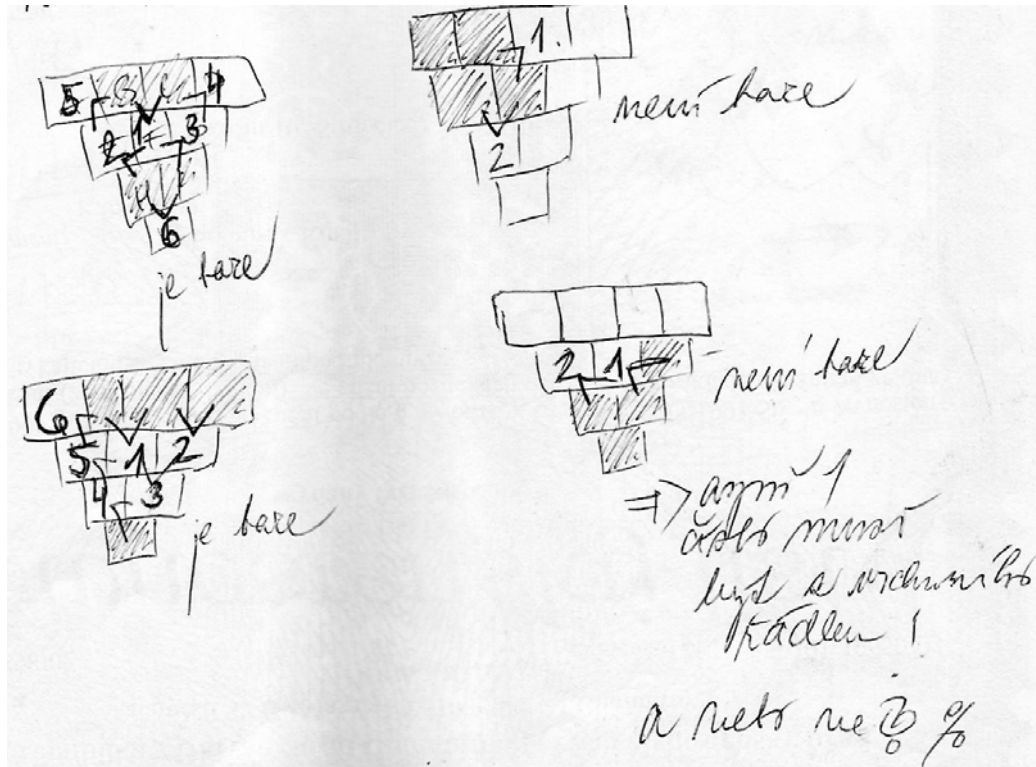 5 4
2 1 3
6
je baze
1.
2
není baze
6
5 1 2
4 3
je baze
2 1
není baze
⇒ aspoň 1
číslo musí
být z vrchního
řádku !
a nebo ne ? %